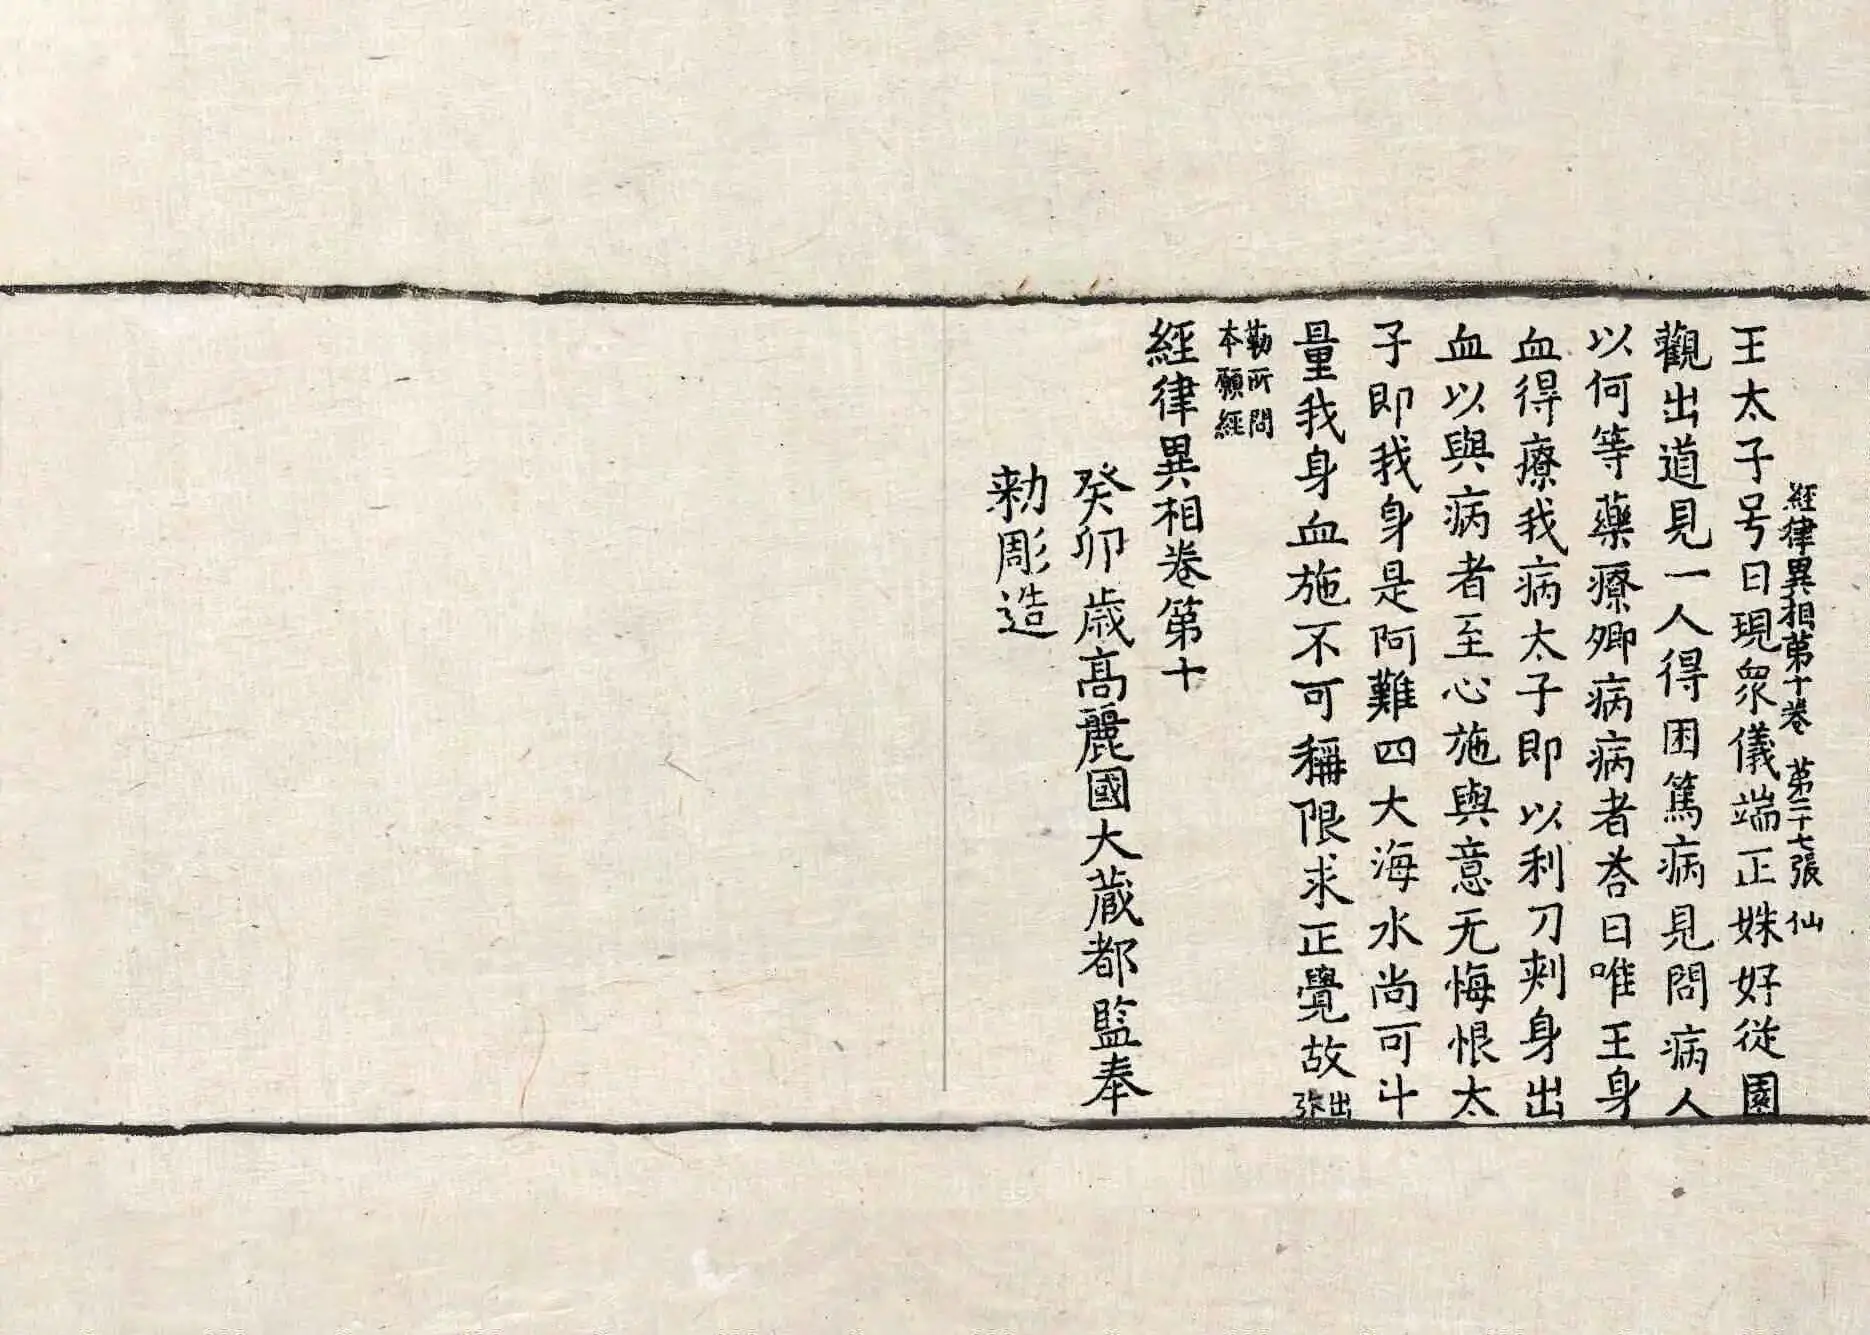 經律異相第十卷 第二十七張 仙
王太子号曰現衆儀端正姝好從園
觀出道見一人得困篤病見問病人
以何等藥療卿病病者荅曰唯王身
血得療我病太子即以利刀刾身出
血以與病者至心施與意无悔恨太
子即我身是阿難四大海水尚可斗
量我身血施不可稱限求正覺故出弥
勒所問本願經
經律異相卷第十
癸卯歳髙麗國大藏都監奉
勑彫造